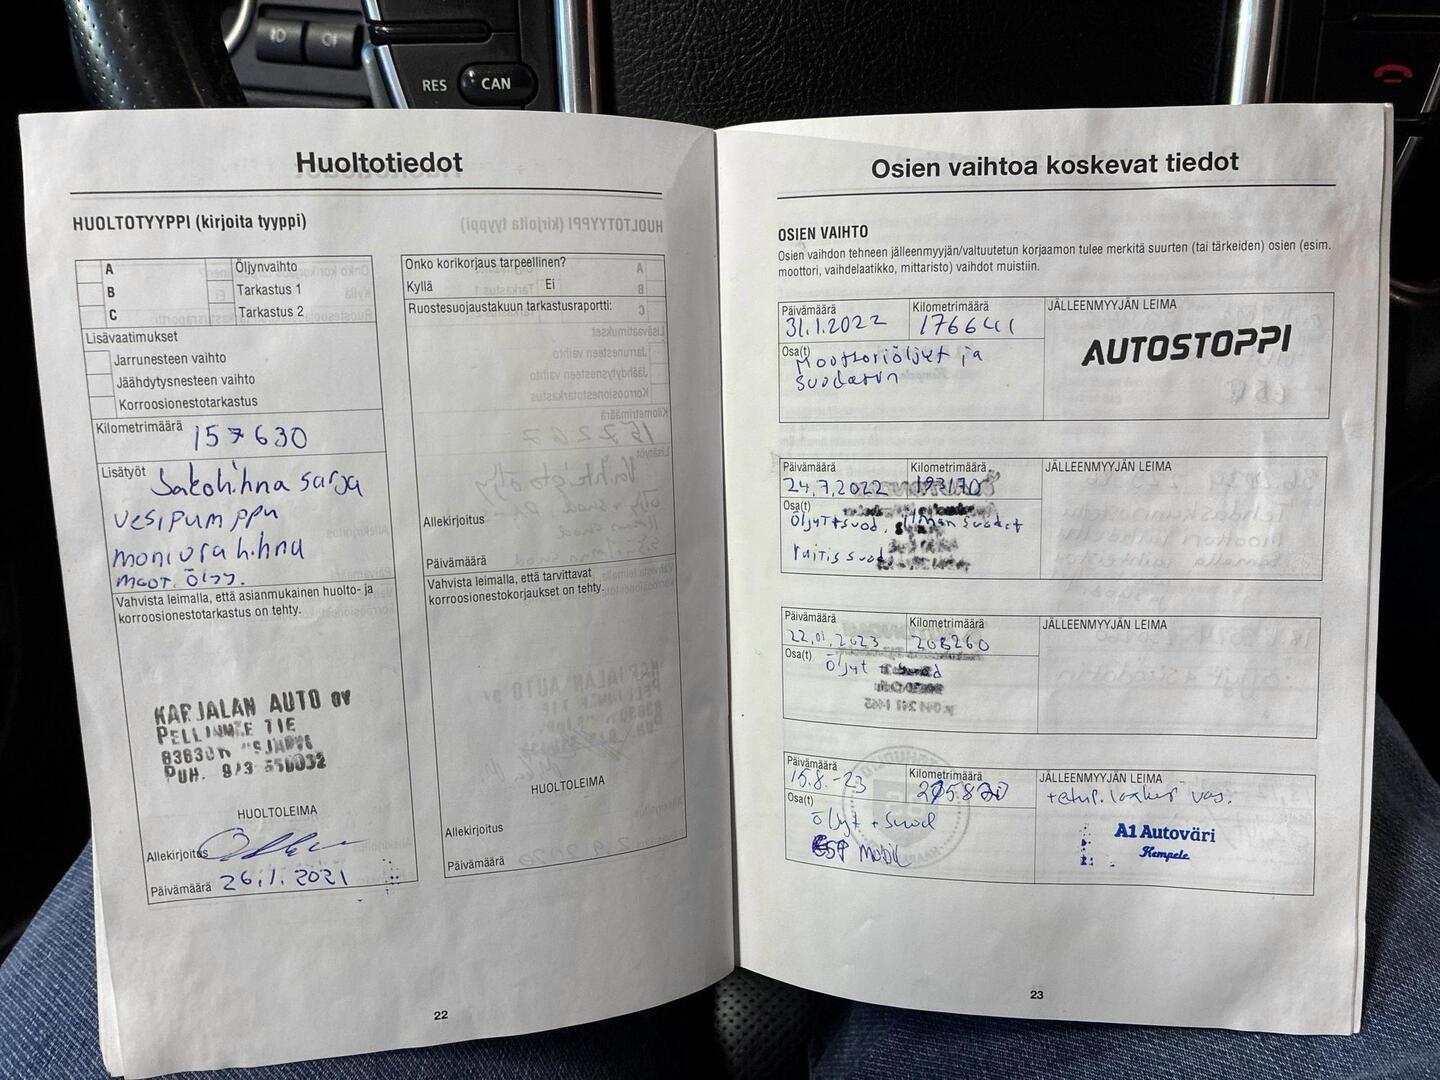 RES
CAN
Huoltotiedot
HUOLTOTYYPPI (kirjoita tyyppi)
A Öljynvaihto
B Tarkastus 1
C Tarkastus 2
Lisävaatimukset
Jarrunesteen vaihto
Jäähdytysnesteen vaihto
Korroosionestotarkastus
Kilometrimäärä 157630
Lisätyöt Jakohihna sarja
vesipumppu
moniurahihna
moot. öljy.
Vahvista leimalla, että asianmukainen huolto- ja
korroosionestotarkastus on tehty.
KARJALAN AUTO OY
TIE
PUH.
HUOLTOLEIMA
Allekirjoitus
Päivämäärä 26.1.2021
Onko korikorjaus tarpeellinen?
Kyllä Ei
Ruostesuojaustakuun tarkastusraportti:
Allekirjoitus
Päivämäärä
Vahvista leimalla, että tarvittavat
korroosionestokorjaukset on tehty.
HUOLTOLEIMA
Allekirjoitus
Päivämäärä
22
Osien vaihtoa koskevat tiedot
OSIEN VAIHTO
Osien vaihdon tehneen jälleenmyyjän/valtuutetun korjaamon tulee merkitä suurten (tai tärkeiden) osien (esim.
moottori, vaihdelaatikko, mittaristo) vaihdot muistiin.
Päivämäärä Kilometrimäärä JÄLLEENMYYJÄN LEIMA
31.1.2022 176641
Osa(t) Moottoriöljyt ja
suodatin
AUTOSTOPPI
Päivämäärä Kilometrimäärä JÄLLEENMYYJÄN LEIMA
24.7.2022 193170
Osa(t) Öljyt+suod. ilman suodat
Päivämäärä Kilometrimäärä JÄLLEENMYYJÄN LEIMA
22.01.2023 208260
Osa(t) Öljyt
Päivämäärä Kilometrimäärä JÄLLEENMYYJÄN LEIMA
15.8.-23
Osa(t) Öljyt + suod
ESP Mobil
A1 Autoväri
Kempele
23